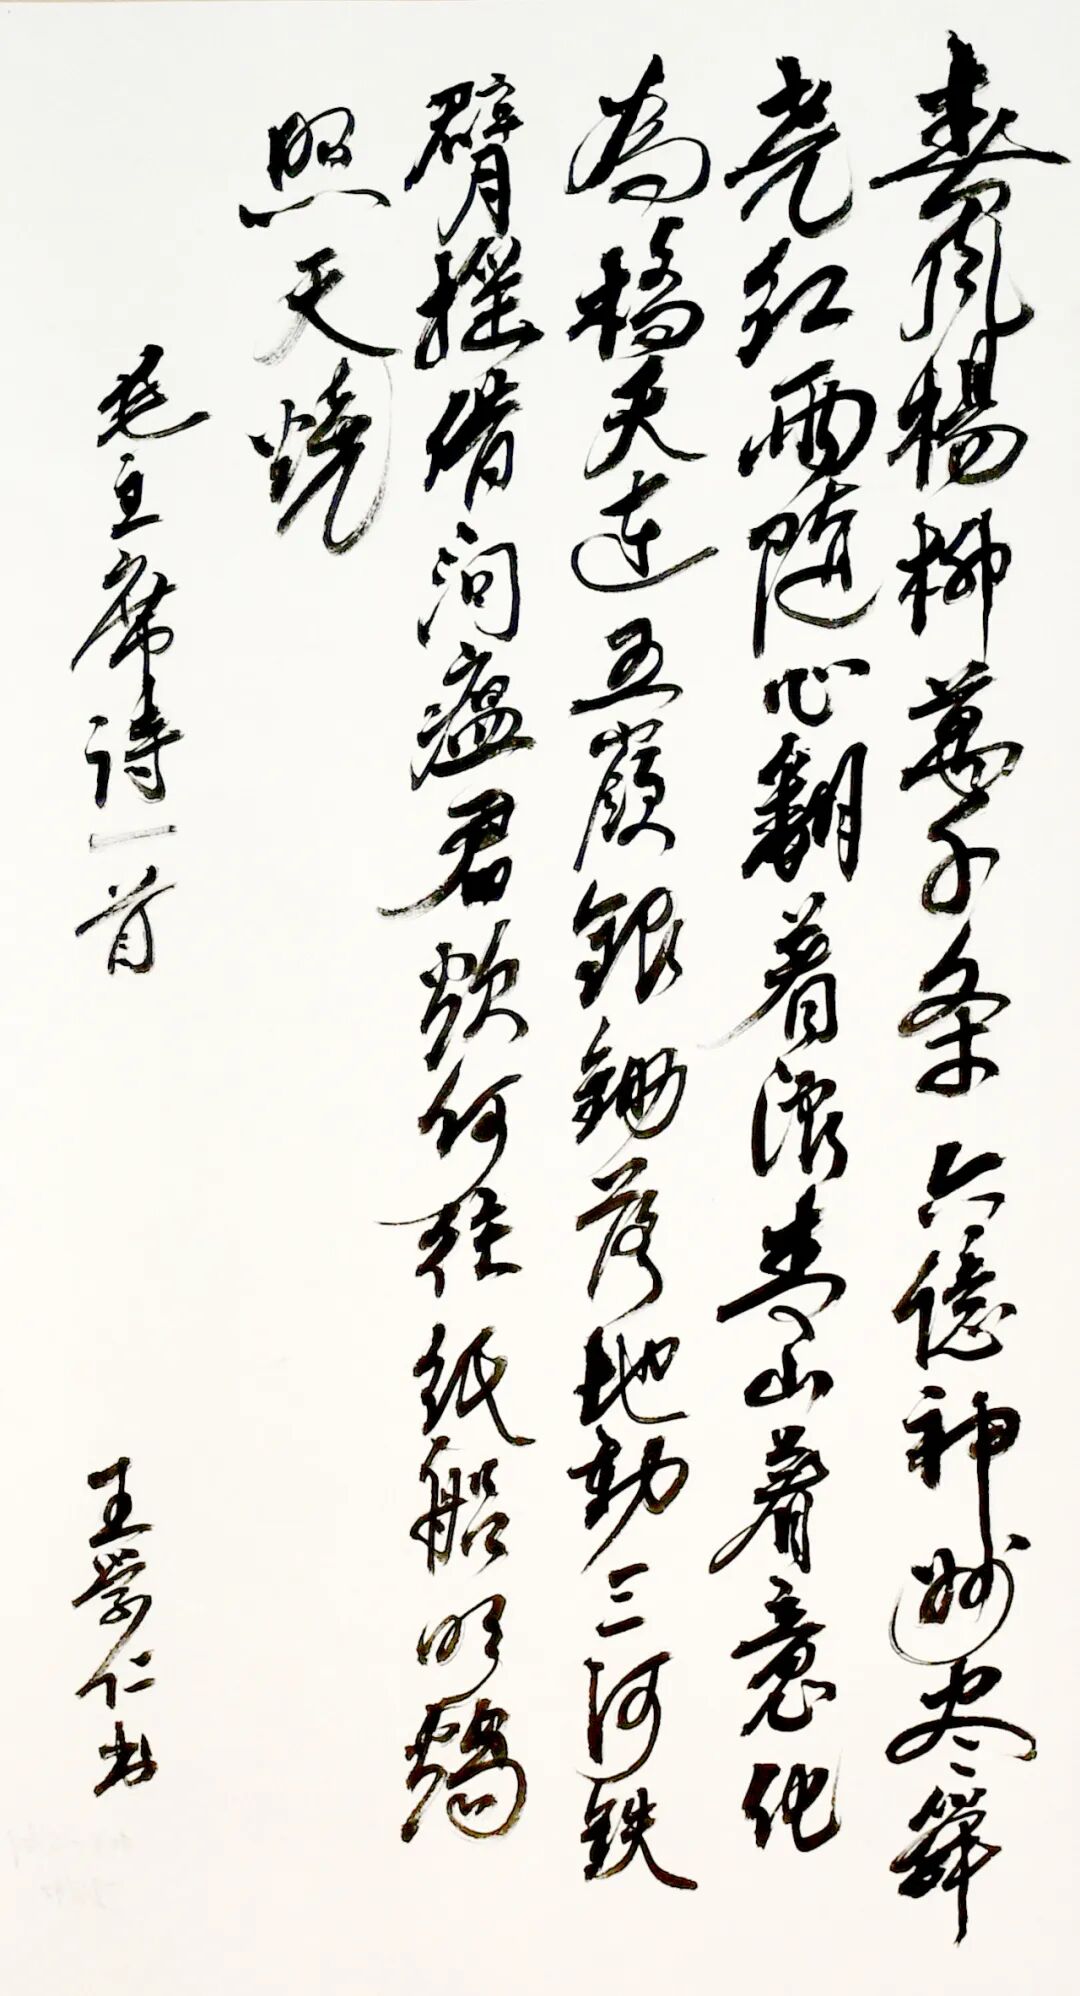 春风楊柳萬千条六億神州尽舜
尧红雨随心翻着浪青山着意化
為橋天连五嶺銀鋤落地動三河铁
臂摇借问瘟君欲何往纸船明燭
照天燒
毛主席诗一首
王学仁书